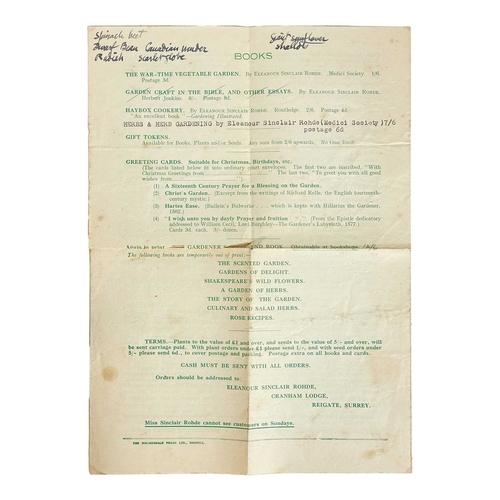 spinach beet
Dwarf Bean Canadian wonder
Radish scarlet globe
giant sunflower
shallot
BOOKS
THE WAR-TIME VEGETABLE GARDEN. By ELEANOUR SINCLAIR ROHDE. Medici Society. 1/6.
Postage 3d.
GARDEN CRAFT IN THE BIBLE, AND OTHER ESSAYS. By ELEANOUR SINCLAIR ROHDE.
Herbert Jenkins. 8/- Postage 8d.
HAYBOX COOKERY. By ELEANOUR SINCLAIR ROHDE. Routledge. 2/6. Postage 4d.
"An excellent book "—Gardening Illustrated.
HERBS & HERB GARDENING by Eleanour Sinclair Rohde(Medici Society)7/6
postage 6d
GIFT TOKENS.
Available for Books, Plants and/or Seeds. Any sum from 2/6 upwards. No time limit.
GREETING CARDS. Suitable for Christmas, Birthdays, etc.
(The cards listed below fit into ordinary court envelopes. The first two are inscribed, "With
Christmas Greetings from The last two, "To greet you with all good
wishes from
(1) A Sixteenth Century Prayer for a Blessing on the Garden.
(2) Christ's Garden. (Excerpt from the writings of Richard Rolle, the English fourteenth-
century mystic.)
(3) Hartes Ease. (Bullein's Bulwarke which is kepte with Hillarius the Gardener,
1562.)
(4) "I wish unto you by dayly Prayer and fruition (From the Epistle dedicatory
addressed to William Cecil, Lord Burghley—The Gardener's Labyrinth, 1577.)
Cards 3d. each. 3/- dozen.
Again in print GARDENER BOOK. Obtainable at bookshops.
The following books are temporarily out of
THE SCENTED GARDEN.
GARDENS OF DELIGHT.
SHAKESPEARE'S WILD FLOWERS.
A GARDEN OF HERBS.
THE STORY OF THE GARDEN.
CULINARY AND SALAD HERBS.
ROSE RECIPES.
TERMS.—Plants to the value of £1 and over, and seeds to the value of 5/- and over, will
be sent carriage paid. With plant orders under £1 please send 1/-, and with seed orders under
5/- please send 6d., to cover postage and packing. Postage extra on all books and cards.
CASH MUST BE SENT WITH ALL ORDERS.
Orders should be addressed to
ELEANOUR SINCLAIR ROHDE,
CRANHAM LODGE,
REIGATE, SURREY.
Miss Sinclair Rohde cannot see customers on Sundays.
THE PRESS LTD.,